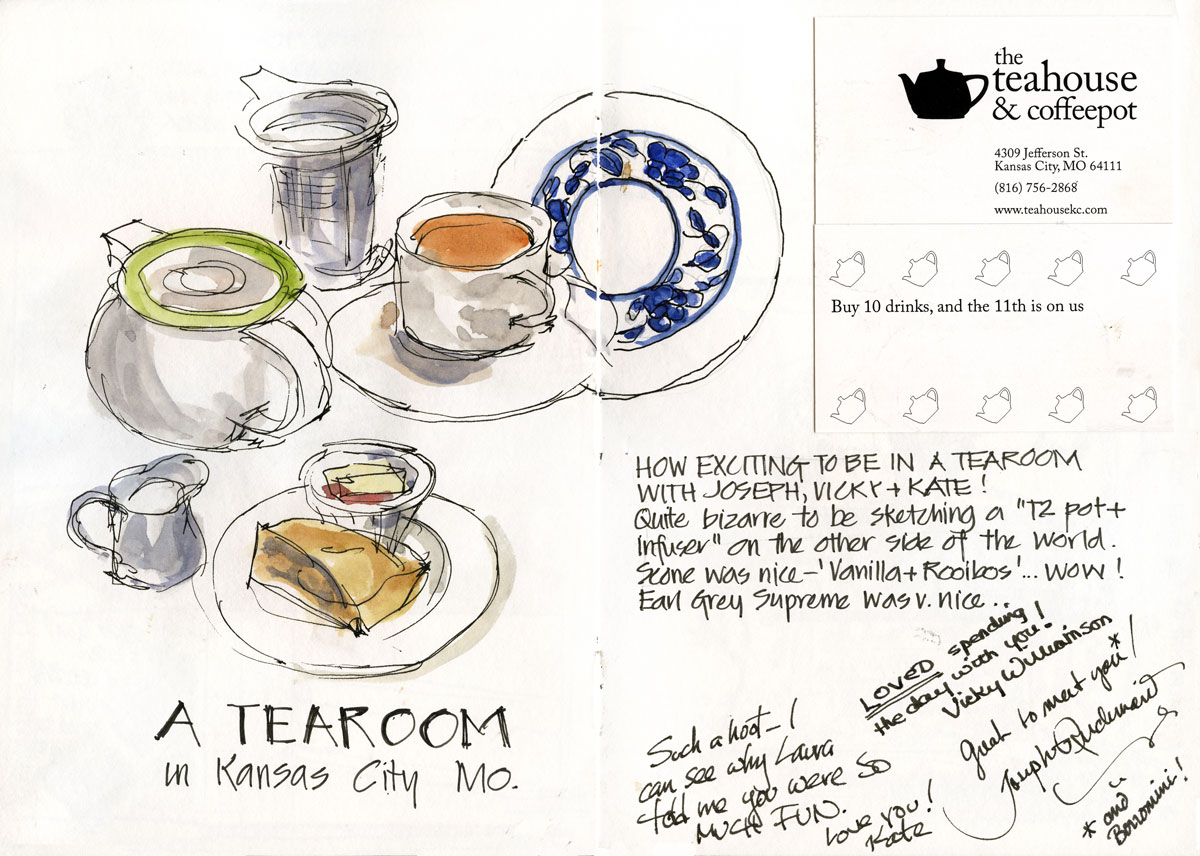 the
teahouse
& coffeepot
4309 Jefferson St.
Kansas City, MO 64111
(816) 756-2868
www.teahousekc.com
Buy 10 drinks, and the 11th is on us
HOW EXCITING TO BE IN A TEAROOM
WITH JOSEPH, VICKY + KATE!
Quite bizarre to be sketching a "T2 pot +
infuser" on the other side of the world.
Scone was nice - 'Vanilla + Rooibos'... WOW!
Earl Grey Supreme was v. nice...
LOVED spending
the day with you!
Vicky Williamson
Great to meet you*!
Joseph
* and
Borromini!
Such a hoot - I
can see why Laura
told me you were SO
MUCH FUN.
Love you!
Kate
A TEAROOM
in Kansas City MO.